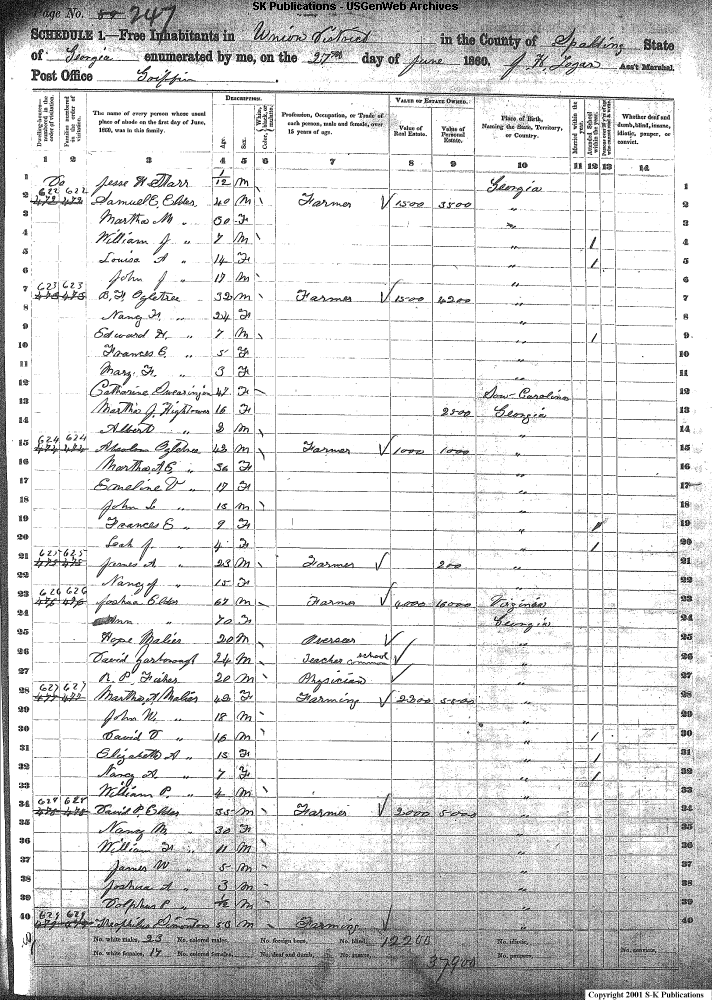 SK Publications - USGenWeb Archives
Page No. 247
SCHEDULE 1.—Free Inhabitants in Union District in the County of Spalding State
of Georgia enumerated by me, on the 27th day of June 1860. J H Logan Ass't Marshal.
Post Office Griffin
Dwelling-houses— numbered in the order of visitation.
Families numbered in the order of visitation.
The name of every person whose usual place of abode on the first day of June, 1860, was in this family.
DESCRIPTION.
Age.
Sex.
Profession, Occupation, or Trade of each person, male and female, over 15 years of age.
VALUE OF ESTATE OWNED.
Value of Real Estate.
Value of Personal Estate.
Place of Birth, Naming the State, Territory, or Country.
Married within the year.
Attended School within the year.
Whether deaf and dumb, blind, insane, idiotic, pauper, or convict.
1 2 3 4 5 6 7 8 9 10 11 12 13 14
1 Do Jesse H Starr 1/12 M Georgia 1
2 622 622 Samuel E. Elder 40 M Farmer 1500 3500 " 2
3 Martha M " 30 F " 3
4 William J " 7 M " / 4
5 Louisa A " 14 F " / 5
6 John J " 17 M " 6
7 623 623 B. F. Ogletree 32 M Farmer 1500 4200 " 7
8 Nancy F. " 24 F " 8
9 Edward H. " 7 M " / 9
10 Frances E. " 5 F " 10
11 Mary F. " 3 F " 11
12 Catharine 47 F Sou Carolina 12
13 Martha J. Hightower 16 F 2500 Georgia 13
14 Albert " 2 M " 14
15 624 624 Absolom Ogletree 43 M Farmer 1000 1000 " 15
16 Martha A E " 36 F " 16
17 Emeline V " 17 F " 17
18 John L " 15 M " 18
19 Frances E " 9 F " / 19
20 Leah J. " 4 F " / 20
21 625 625 James A " 23 M Farmer 200 " 21
22 Nancy J " 15 F " 22
23 626 626 Joshua Elder 67 M Farmer 4000 16000 Virginia 23
24 Ann " 70 F Georgia 24
25 Hope Malier 20 M Overseer " 25
26 David Yarborough 24 M Teacher common school " 26
27 R. P. Fisher 20 M Physician " 27
28 627 627 Martha A Malier 42 F Farming 2200 5000 " 28
29 John W. " 18 M " 29
30 David T " 16 M " / 30
31 Elizabeth A " 13 F " / 31
32 Nancy A. " 7 F " / 32
33 William P. " 4 M " 33
34 628 628 David P. Elder 35 M Farmer 2000 5000 " 34
35 Nancy M " 30 F " 35
36 William F. " 11 M " 36
37 James W " 5 M " 37
38 Joshua A " 3 M " 38
39 Dolphus P. " M " 39
40 629 629 Theophilus Simonton 50 M Farming " 40
No. white males, 23 No. colored males, No. foreign born, No. blind, 12200 No. idiotic, No. convicts,
No. white females, 17 No. colored females, No. deaf and dumb, No. insane, 37900 No. paupers,
Copyright 2001 S-K Publications